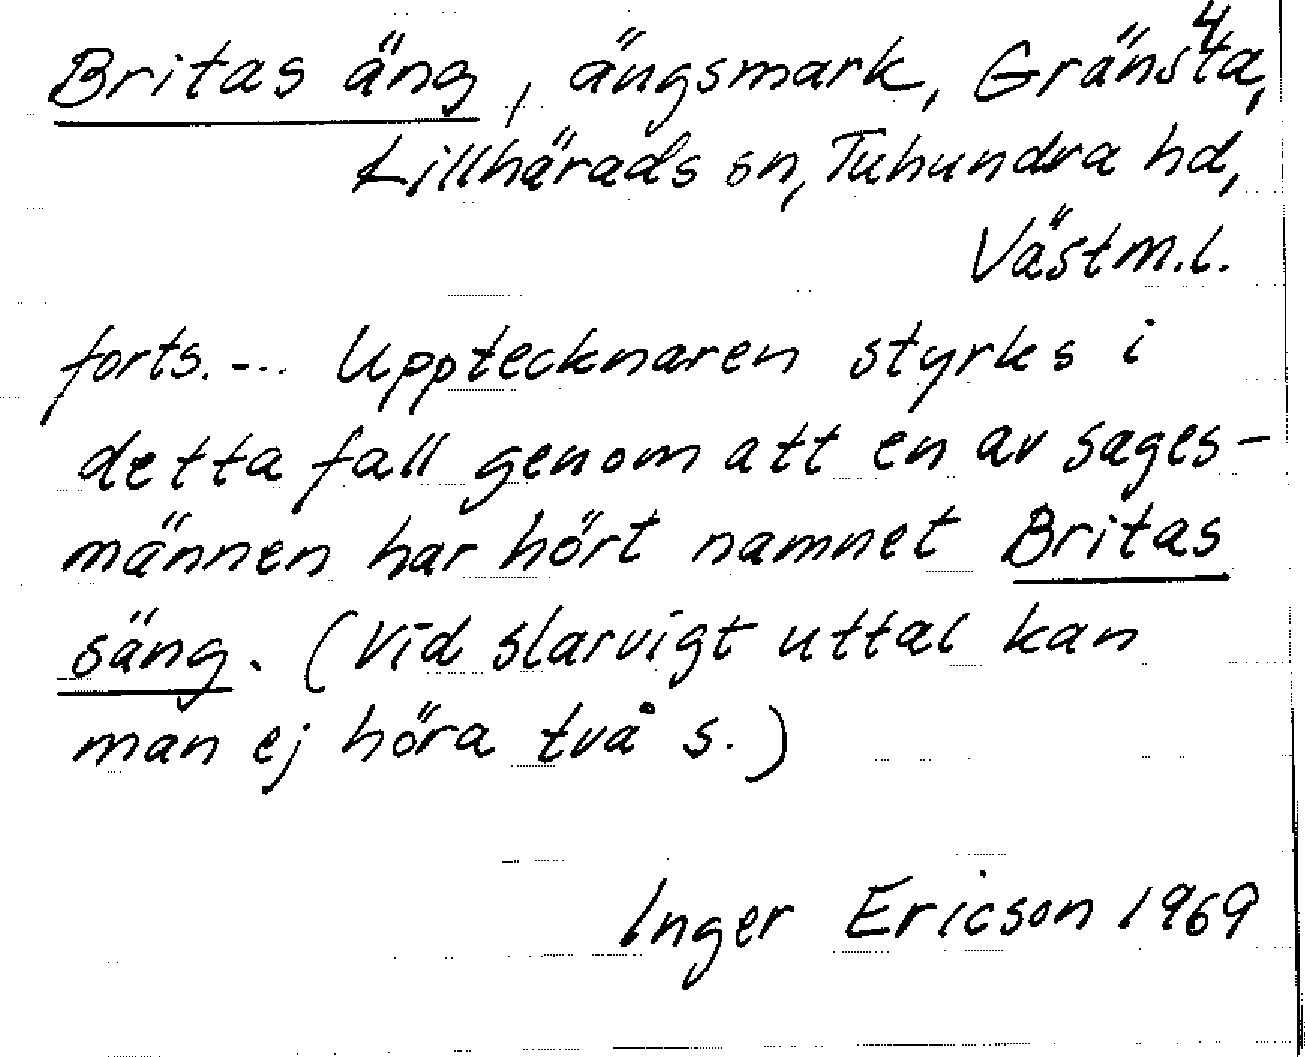 4
Britas äng, ängsmark, Gränsta,
Lillhärads sn, Tuhundra hd,
Västm.l.
forts.-.. Upptecknaren styrks i
detta fall genom att en av sages-
männen har hört namnet Britas
säng. (Vid slarvigt uttal kan
man ej höra två s.)
Inger Ericson 1969